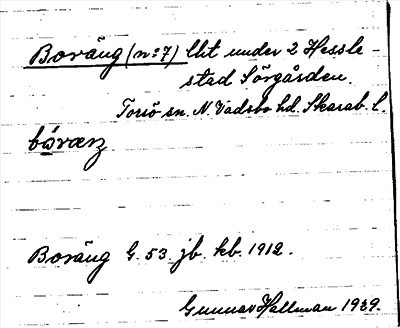 Boräng (n:o 7) lht under 2 Hessle-
stad Sörgården.
Torsö sn. N. Vadsbo hd. Skarab. l.
Boräng G. 53. jb. kb. 1912.
Gunnar Hallman 1939.